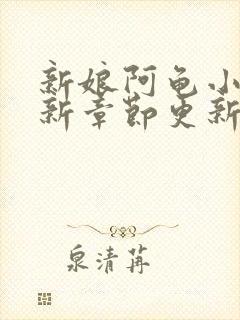 新娘阿龟小
新章节更新
泉清苒